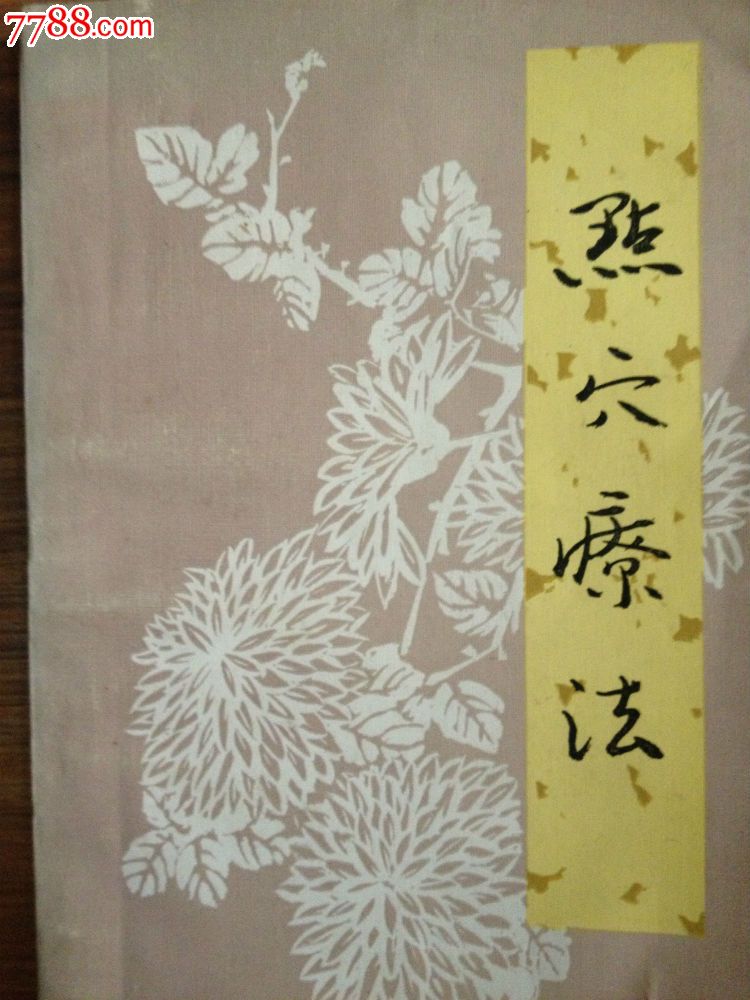 7788.com
點穴療法